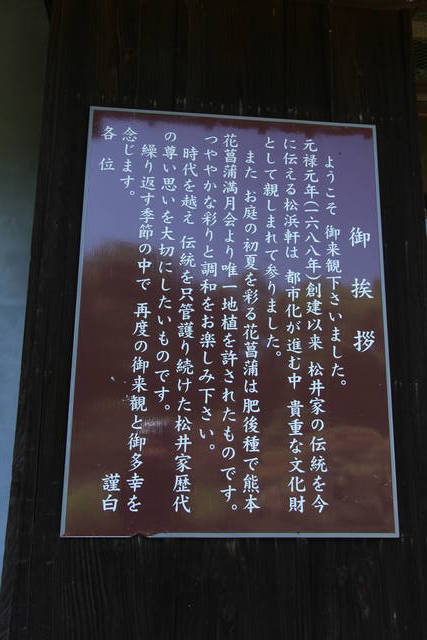 御挨拶
ようこそ 御来観下さいました。
元禄元年(一六八八年)創建以来 松井家の伝統を今
に伝える松浜軒は 都市化が進む中 貴重な文化財
として親しまれて参りました。
また お庭の初夏を彩る花菖蒲は肥後種で熊本
花菖蒲満月会より唯一地植を許されたものです。
つややかな彩りと調和をお楽しみ下さい。
時代を越え 伝統を只管護り続けた松井家歴代
の尊い思いを大切にしたいものです。
繰り返す季節の中で 再度の御来観と御多幸を
念じます。 謹白
各位